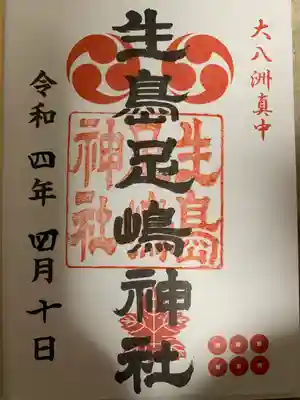 大八洲真中
生島足嶋神社
生島
足嶋
神社
令和四年四月十日